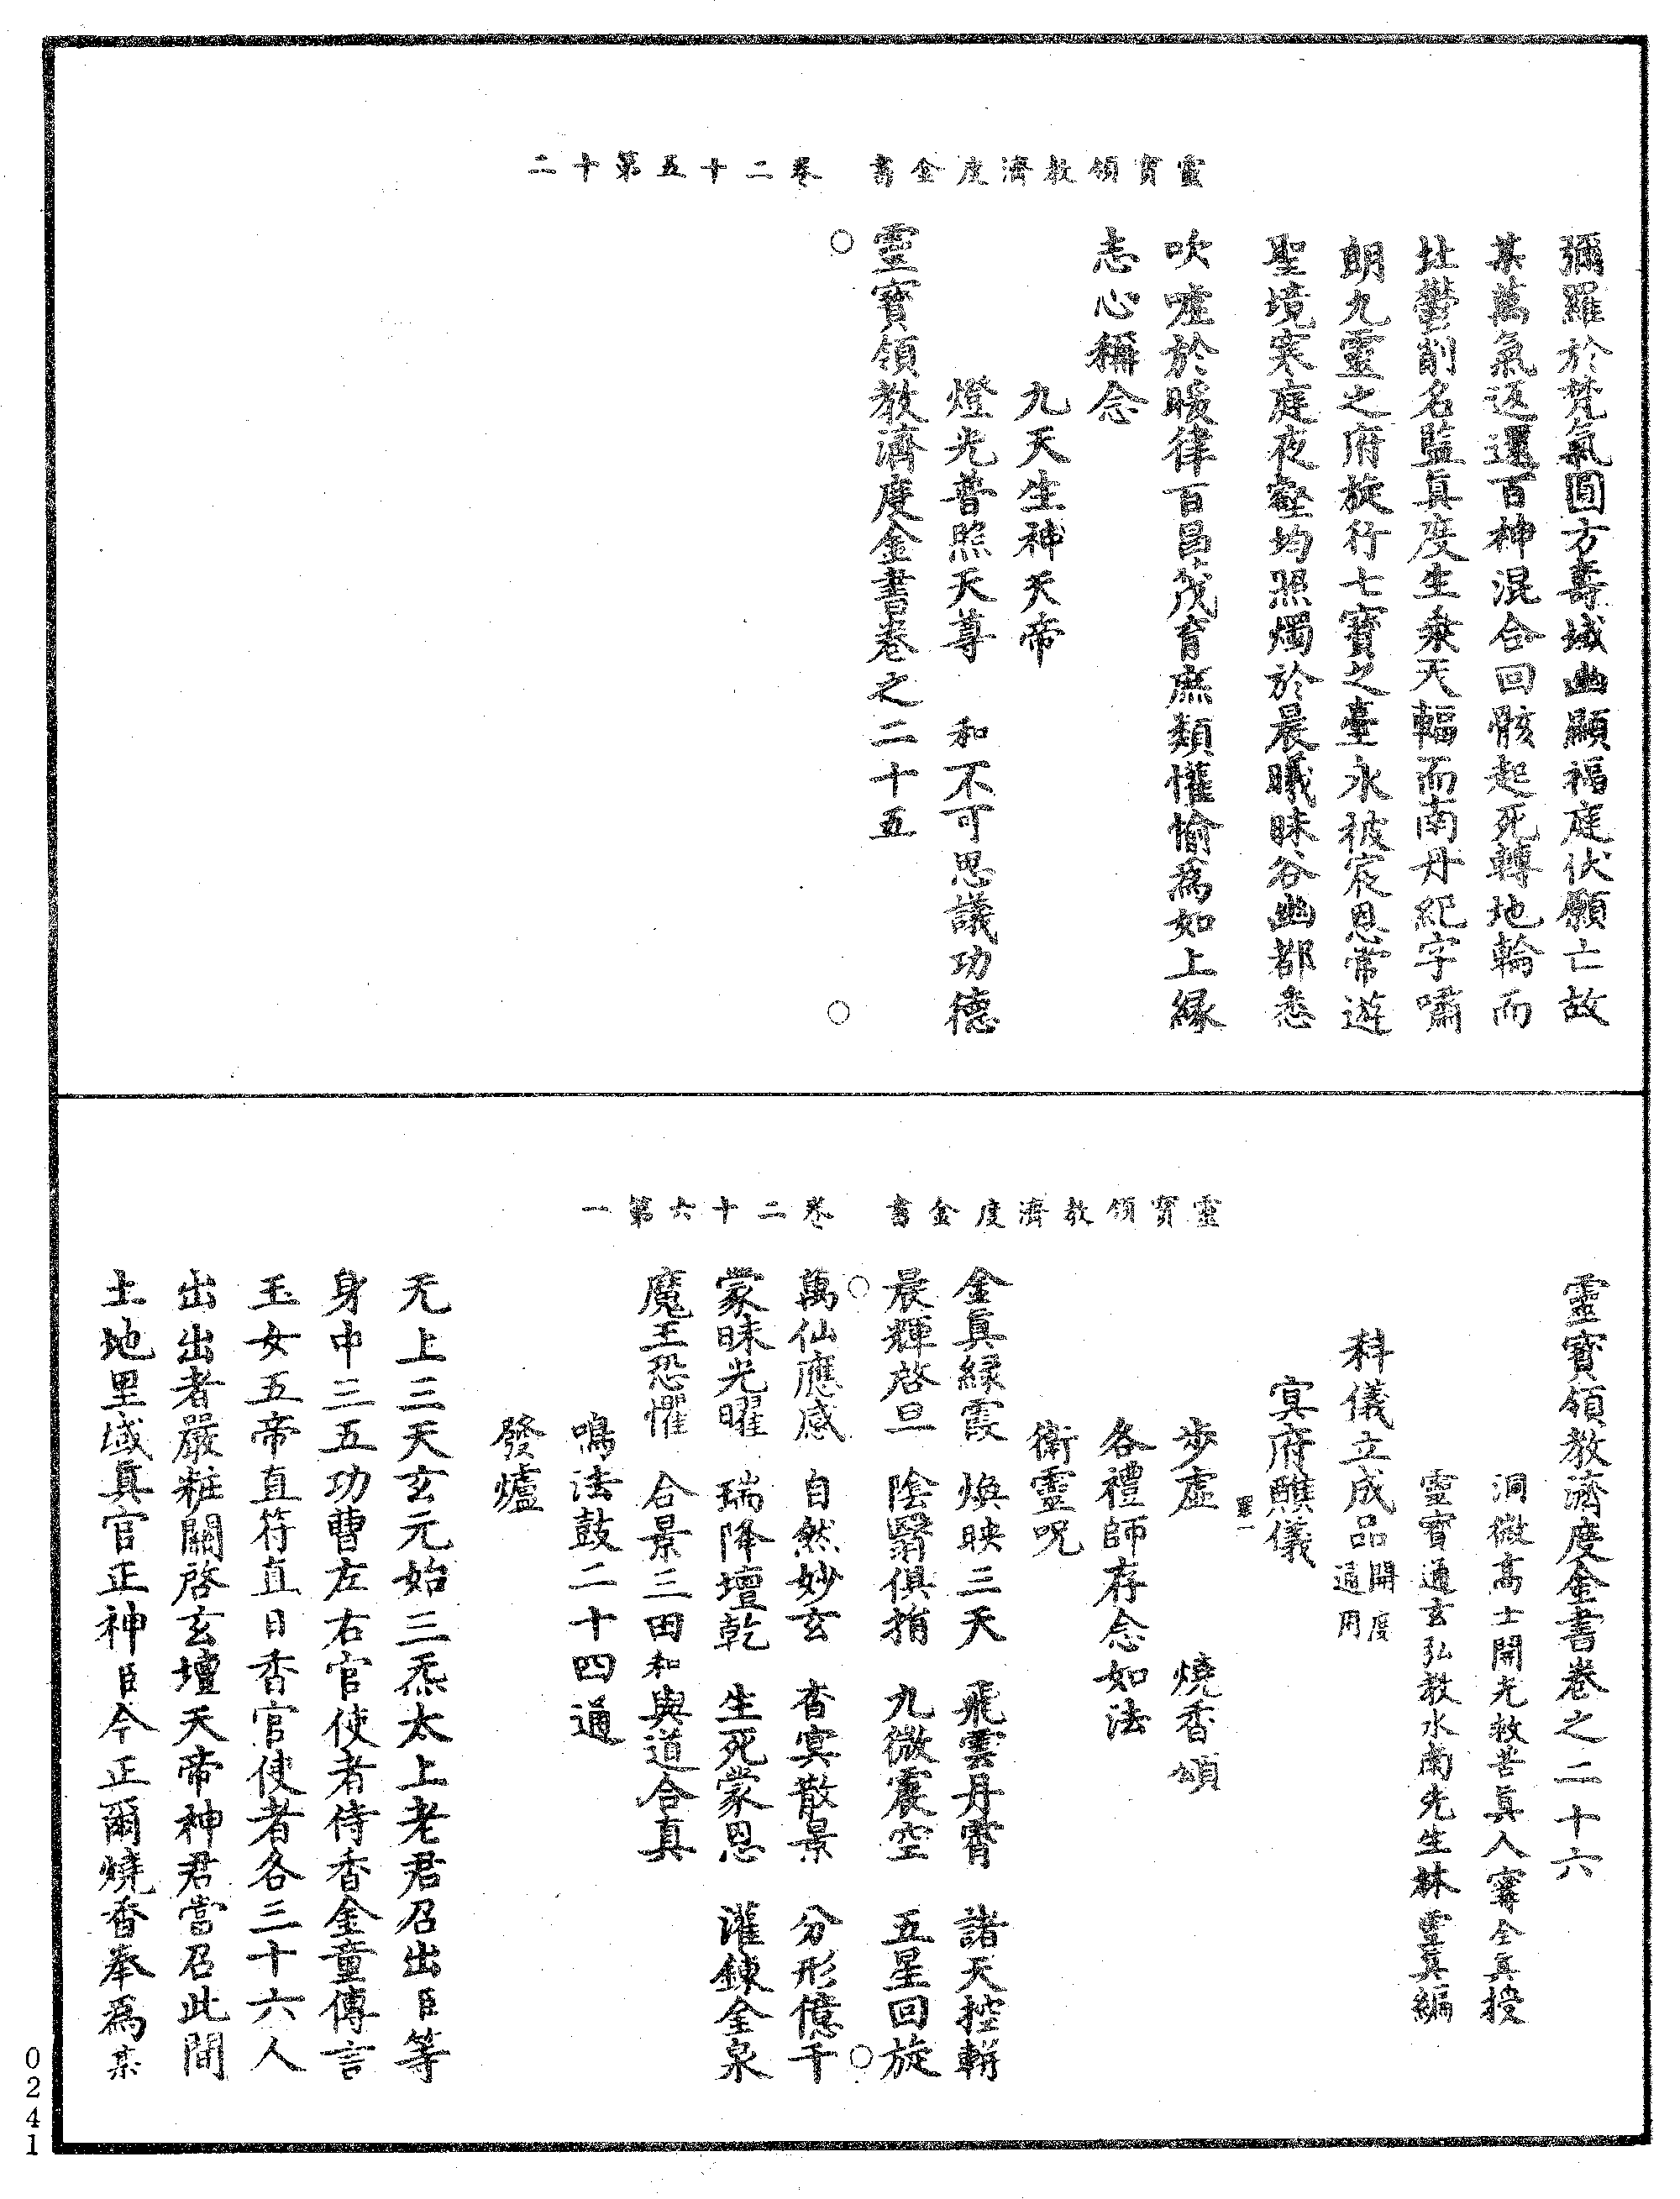 靈寶領教濟度金書　卷二十五第十二
彌羅於梵氣圓方壽域幽顯福庭伏願亡故
某萬氣返還百神混合回骸起死轉地輪而
北鬱削名監真度生乘天輻而南丹紀字嘯
朗九靈之府旋行七寶之臺永被宸恩常遊
聖境寒庭夜壑均照燭於晨曦昧谷幽都悉
吹噓於暖律百昌茂育庶類懽愉為如上緣
志心稱念
九天生神天帝
燈光普照天尊　和不可思議功德
靈寶領教濟度金書卷之二十五
靈寶領教濟度金書　卷二十六第一
靈寶領教濟度金書卷之二十六
洞微高士開光救苦真人寗全真授
靈寶通玄弘教水南先生林靈真編
科儀立成品開度通用
冥府醮儀
步虛　燒香頌
各禮師存念如法
衛靈呪
金真緣霞　煥映三天　飛雲丹霄　諸天控軿
晨輝啓旦　陰翳俱捐　九微震空　五星回旋
萬仙應感　自然妙玄　杳冥散景　分形億千
蒙昧光曜　瑞降壇乾　生死蒙恩　灌鍊金泉
魔王恐懼　合景三田和與道合真
鳴法鼓二十四通
發爐
无上三天玄元始三炁太上老君召出臣等
身中三五功曹左右官使者侍香金童傳言
玉女五帝直符直日香官使者各三十六人
出出者嚴粧關啓玄壇天帝神君當召此間
土地里域真官正神臣今正爾燒香奉為某
0241